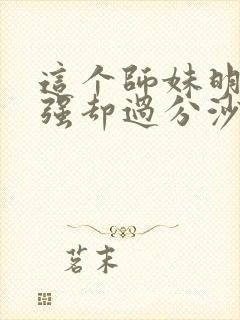 這个師妹明
强却過分沙
茗末